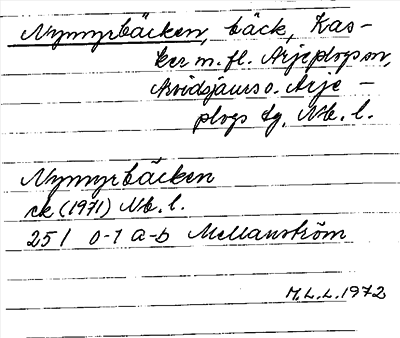 Nymyrbäcken, bäck, Kas-
ker m.fl. Arjeplogs sn,
Arvidsjaurs o. Arje-
plogs tg, Nb. l.
Nymyrbäcken
rk (1971) Nb. l.
25 I 0-1 a-b Mellanström
M.L.L. 1972